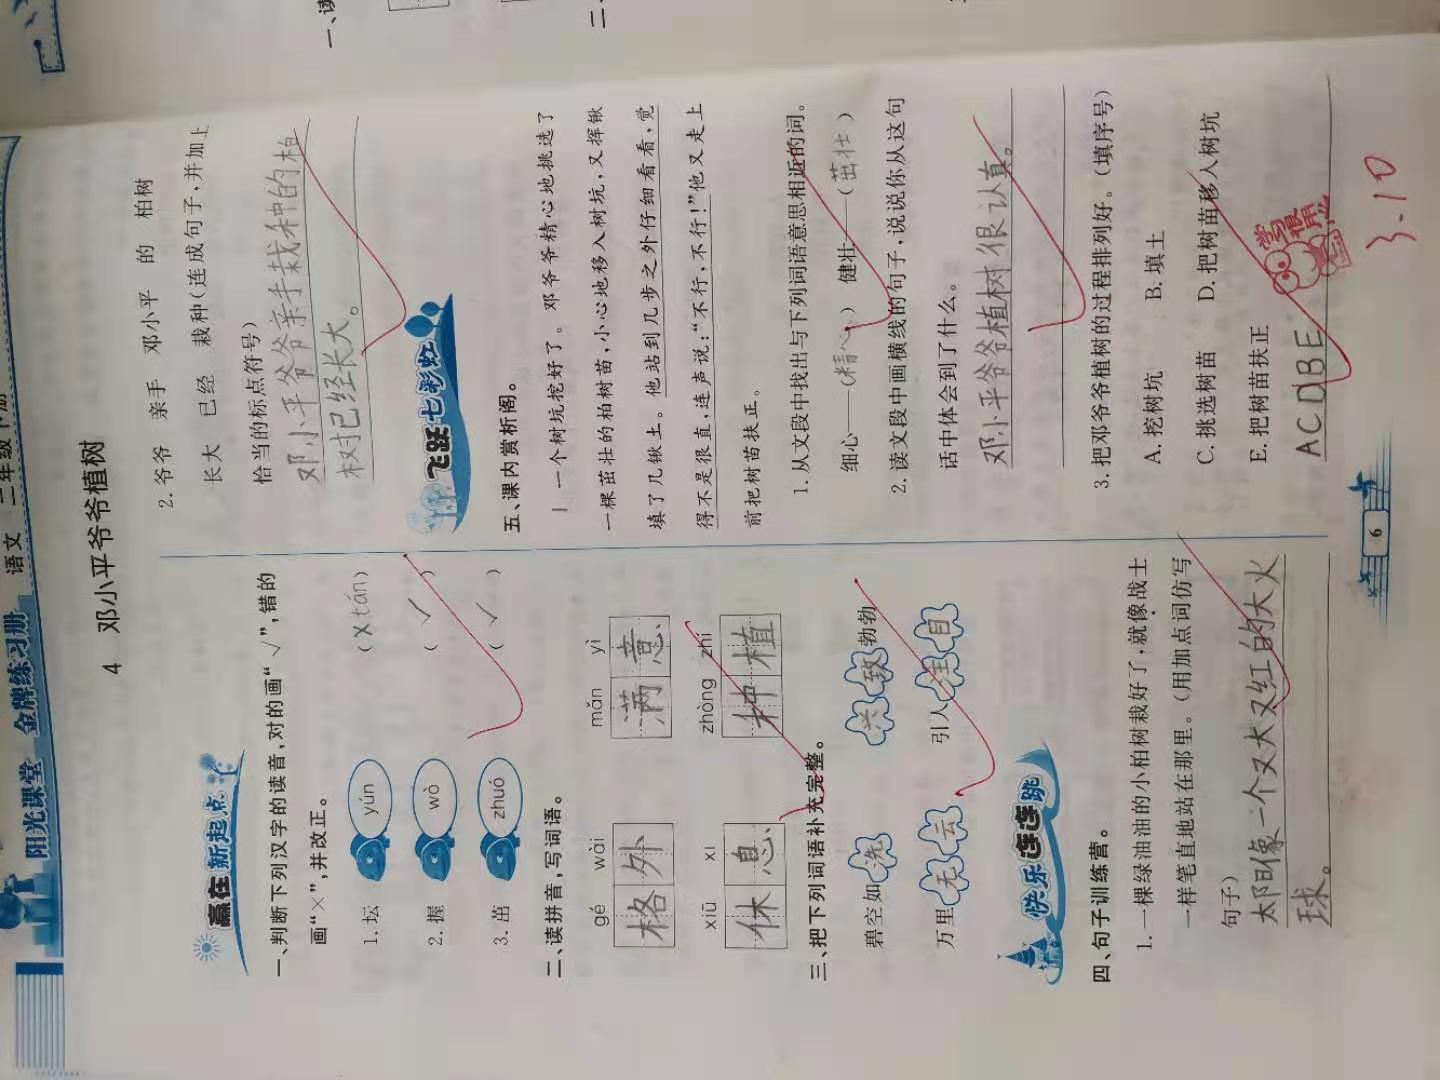 阳光课堂 金牌练习册 语文 二年级下册
4 邓小平爷爷植树
赢在新起点
一、判断下列汉字的读音,对的画“√”,错的
画“×”,并改正。
1.坛 yún (×tán)
2.握 wò (√)
3.茁 zhuó (√)
二、读拼音,写词语。
gé wài mǎn yì
格外 满意
xiū xi zhòng zhí
休息 种植
三、把下列词语补充完整。
碧空如洗 兴致勃勃
万里无云 引人注目
快乐连连跳
四、句子训练营。
1.一棵绿油油的小柏树栽好了,就像战士
一样笔直地站在那里。(用加点词仿写
句子)
太阳像一个又大又红的大火
球。
2.爷爷 亲手 邓小平 的 柏树
长大 已经 栽种(连成句子,并加上
恰当的标点符号)
邓小平爷爷亲手栽种的柏
树已经长大。
飞跃七彩虹
五、课内赏析阁。
一个树坑挖好了。邓爷爷精心地挑选了
一棵茁壮的柏树苗,小心地移入树坑,又挥锹
填了几锹土。他站到几步之外仔细看看,觉
得不是很直,连声说:“不行,不行!”他又走上
前把树苗扶正。
1.从文段中找出与下列词语意思相近的词。
细心——(精心) 健壮——(茁壮)
2.读文段中画横线的句子,说说你从这句
话中体会到了什么。
邓小平爷爷植树很认真。
3.把邓爷爷植树的过程排列好。(填序号)
A.挖树坑 B.填土
C.挑选树苗 D.把树苗移入树坑
E.把树苗扶正
ACDBE
学习很用心
3.10
6